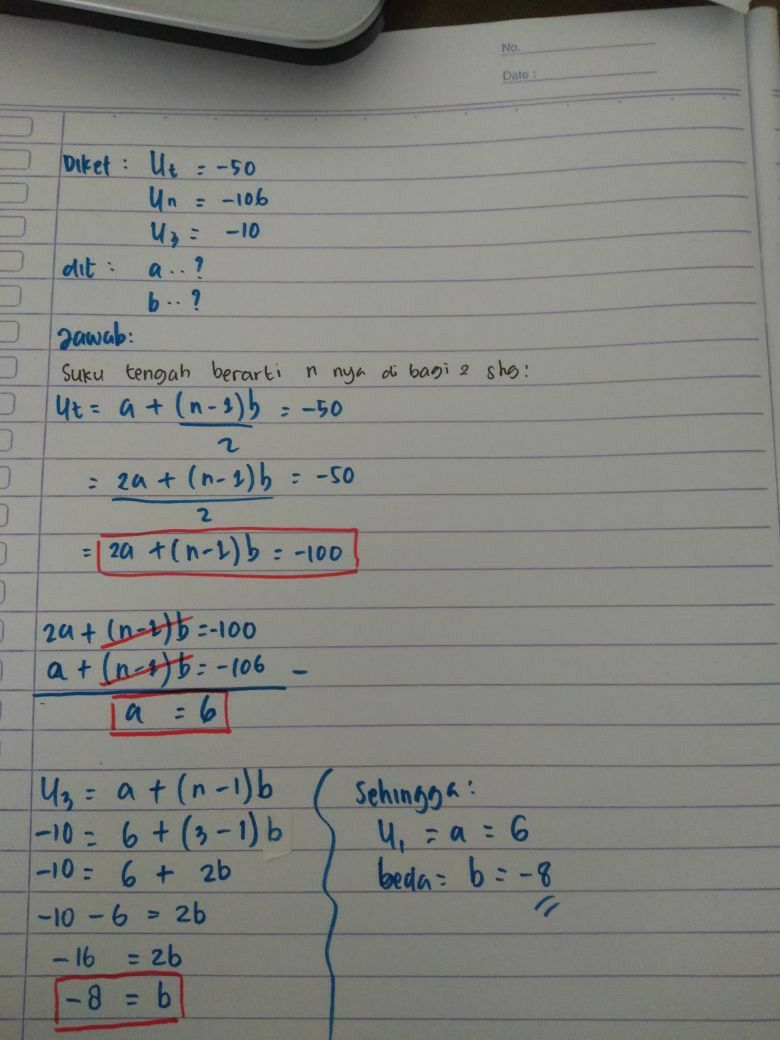 No.
Date :
Diket : Ut = -50
Un = -106
U3 = -10
dit : a .. ?
b .. ?
Jawab:
Suku tengah berarti n nya di bagi 2 shg:
Ut = a + (n-1)b/2 = -50
= 2a + (n-1)b/2 = -50
= 2a + (n-1)b = -100
2a + (n-1)b = -100
a + (n-1)b = -106 -
a = 6
U3 = a + (n-1)b
-10 = 6 + (3-1)b
-10 = 6 + 2b
-10 - 6 = 2b
-16 = 2b
-8 = b
Sehingga:
U1 = a = 6
beda = b = -8